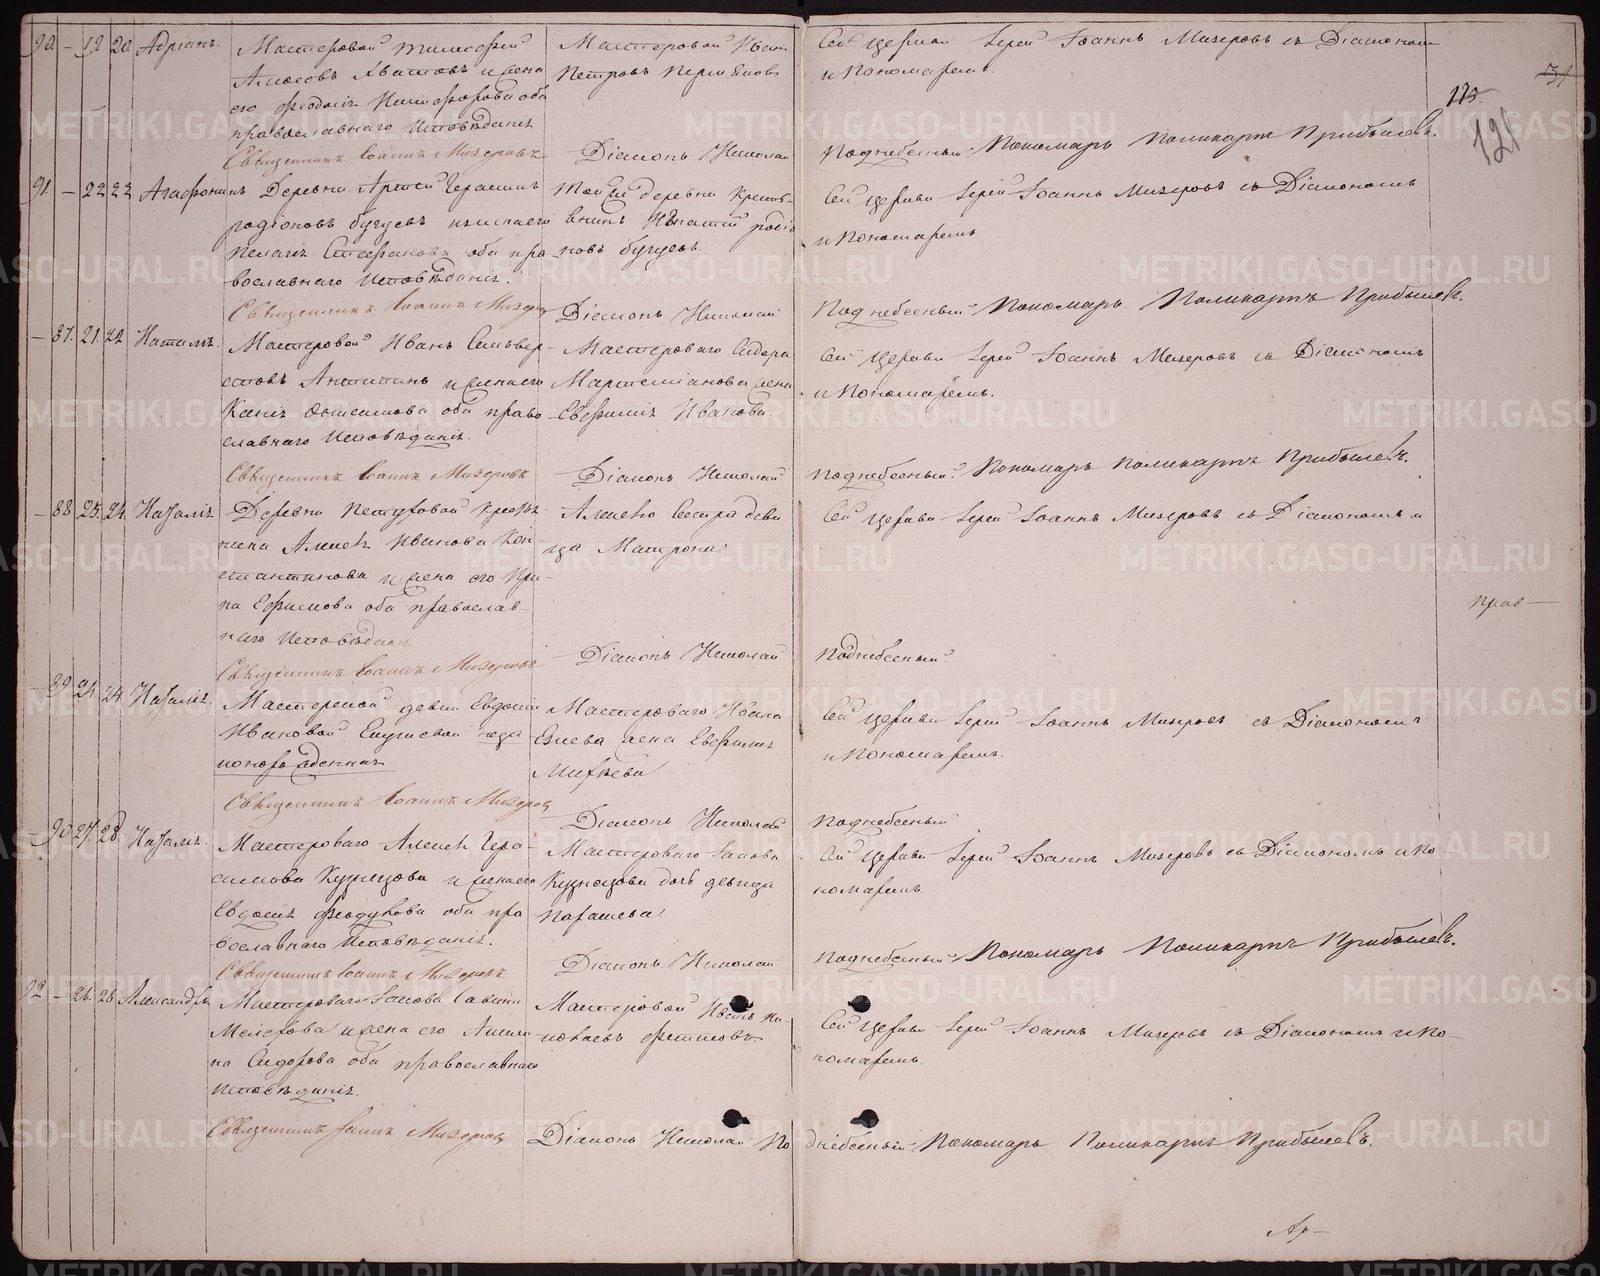 90 – 19 20 Адріанъ.
Мастеровой Тимофей
Амосовъ Хватовъ и жена
его Феодосія Никифорова оба
православнаго исповѣданія
Мастеровой Иванъ
Петровъ
Сей церкви Іерей Іоаннъ Мизеровъ съ Діакономъ
и Пономаремъ.
31
173.
121
Священникъ Іоаннъ Мизеровъ
Діаконъ Николай
Поднебесный. Пономарь Поликарпъ Прибылевъ.
91. – 22 22 Агафоникъ
Деревни Герасимъ
Родіоновъ и жена его
Пелагія Стефанова оба пра-
вославнаго исповѣданія.
Той же деревни Кресть-
янинъ Игнатій Родіо-
новъ
Сей церкви Іерей Іоаннъ Мизеровъ съ Діакономъ
и Пономаремъ
Священникъ Іоаннъ Мизеровъ
Діаконъ Николай
Поднебесный. Пономарь Поликарпъ Прибылевъ.
– 87. 21. 22 Наталія.
Мастеровой Иванъ Сильвер-
стовъ Антипинъ и жена его
Ксенія Онисимова оба право-
славнаго исповѣданія.
Мастероваго Сидора
Мартеміанова жена
Евфимія Иванова.
Сей церкви Іерей Іоаннъ Мизеровъ съ Діакономъ
и Пономаремъ.
Священникъ Іоаннъ Мизеровъ
Діаконъ Николай
Поднебесный. Пономарь Поликарпъ Прибылевъ.
– 88 25. 24. Наталія
Деревни Петуховой Крестья-
нина Алексѣя Иванова Кон-
стантинова и жена его Ири-
на Ефимова оба православ-
наго исповѣданія
Алексѣя сестра деви-
ца Матрона.
Сей церкви Іерей Іоаннъ Мизеровъ съ Діакономъ и
прав –
Священникъ Іоаннъ Мизеровъ
Діаконъ Николай
Поднебесный.
89 24 24 Наталія.
Мастерской девки Евдокіи
Ивановой
незаконорожденная
Мастероваго Ивана
жена Евфимія
Сей церкви Іерей Іоаннъ Мизеровъ съ Діакономъ
и Пономаремъ.
Священникъ Іоаннъ Мизеровъ
Діаконъ Николай
Поднебесный
– 90 27. 28 Наталія.
Мастероваго Алексѣя Гера-
симова Кузнецова и жена его
Евдокія Феодулова оба пра-
вославнаго исповѣданія.
Мастероваго Іакова
Кузнецова дочь девица
Парасковья.
Сей церкви Іерей Іоаннъ Мизеровъ съ Діакономъ и По-
номаремъ.
Священникъ Іоаннъ Мизеровъ
Діаконъ Николай
Поднебесный. Пономарь Поликарпъ Прибылевъ.
92 – 26. 28 Александръ
Мастероваго Іакова Савина
и жена его Акили-
на Сидорова оба православнаго
исповѣданія.
Мастеровой Иванъ Ни-
колаевъ
Сей церкви Іерей Іоаннъ Мизеровъ съ Діакономъ и По-
номаремъ.
Священникъ Іоаннъ Мизеровъ
Діаконъ Николай Поднебесный. Пономарь Поликарпъ Прибылевъ.
Ар –
METRIKI.GASO-URAL.RU